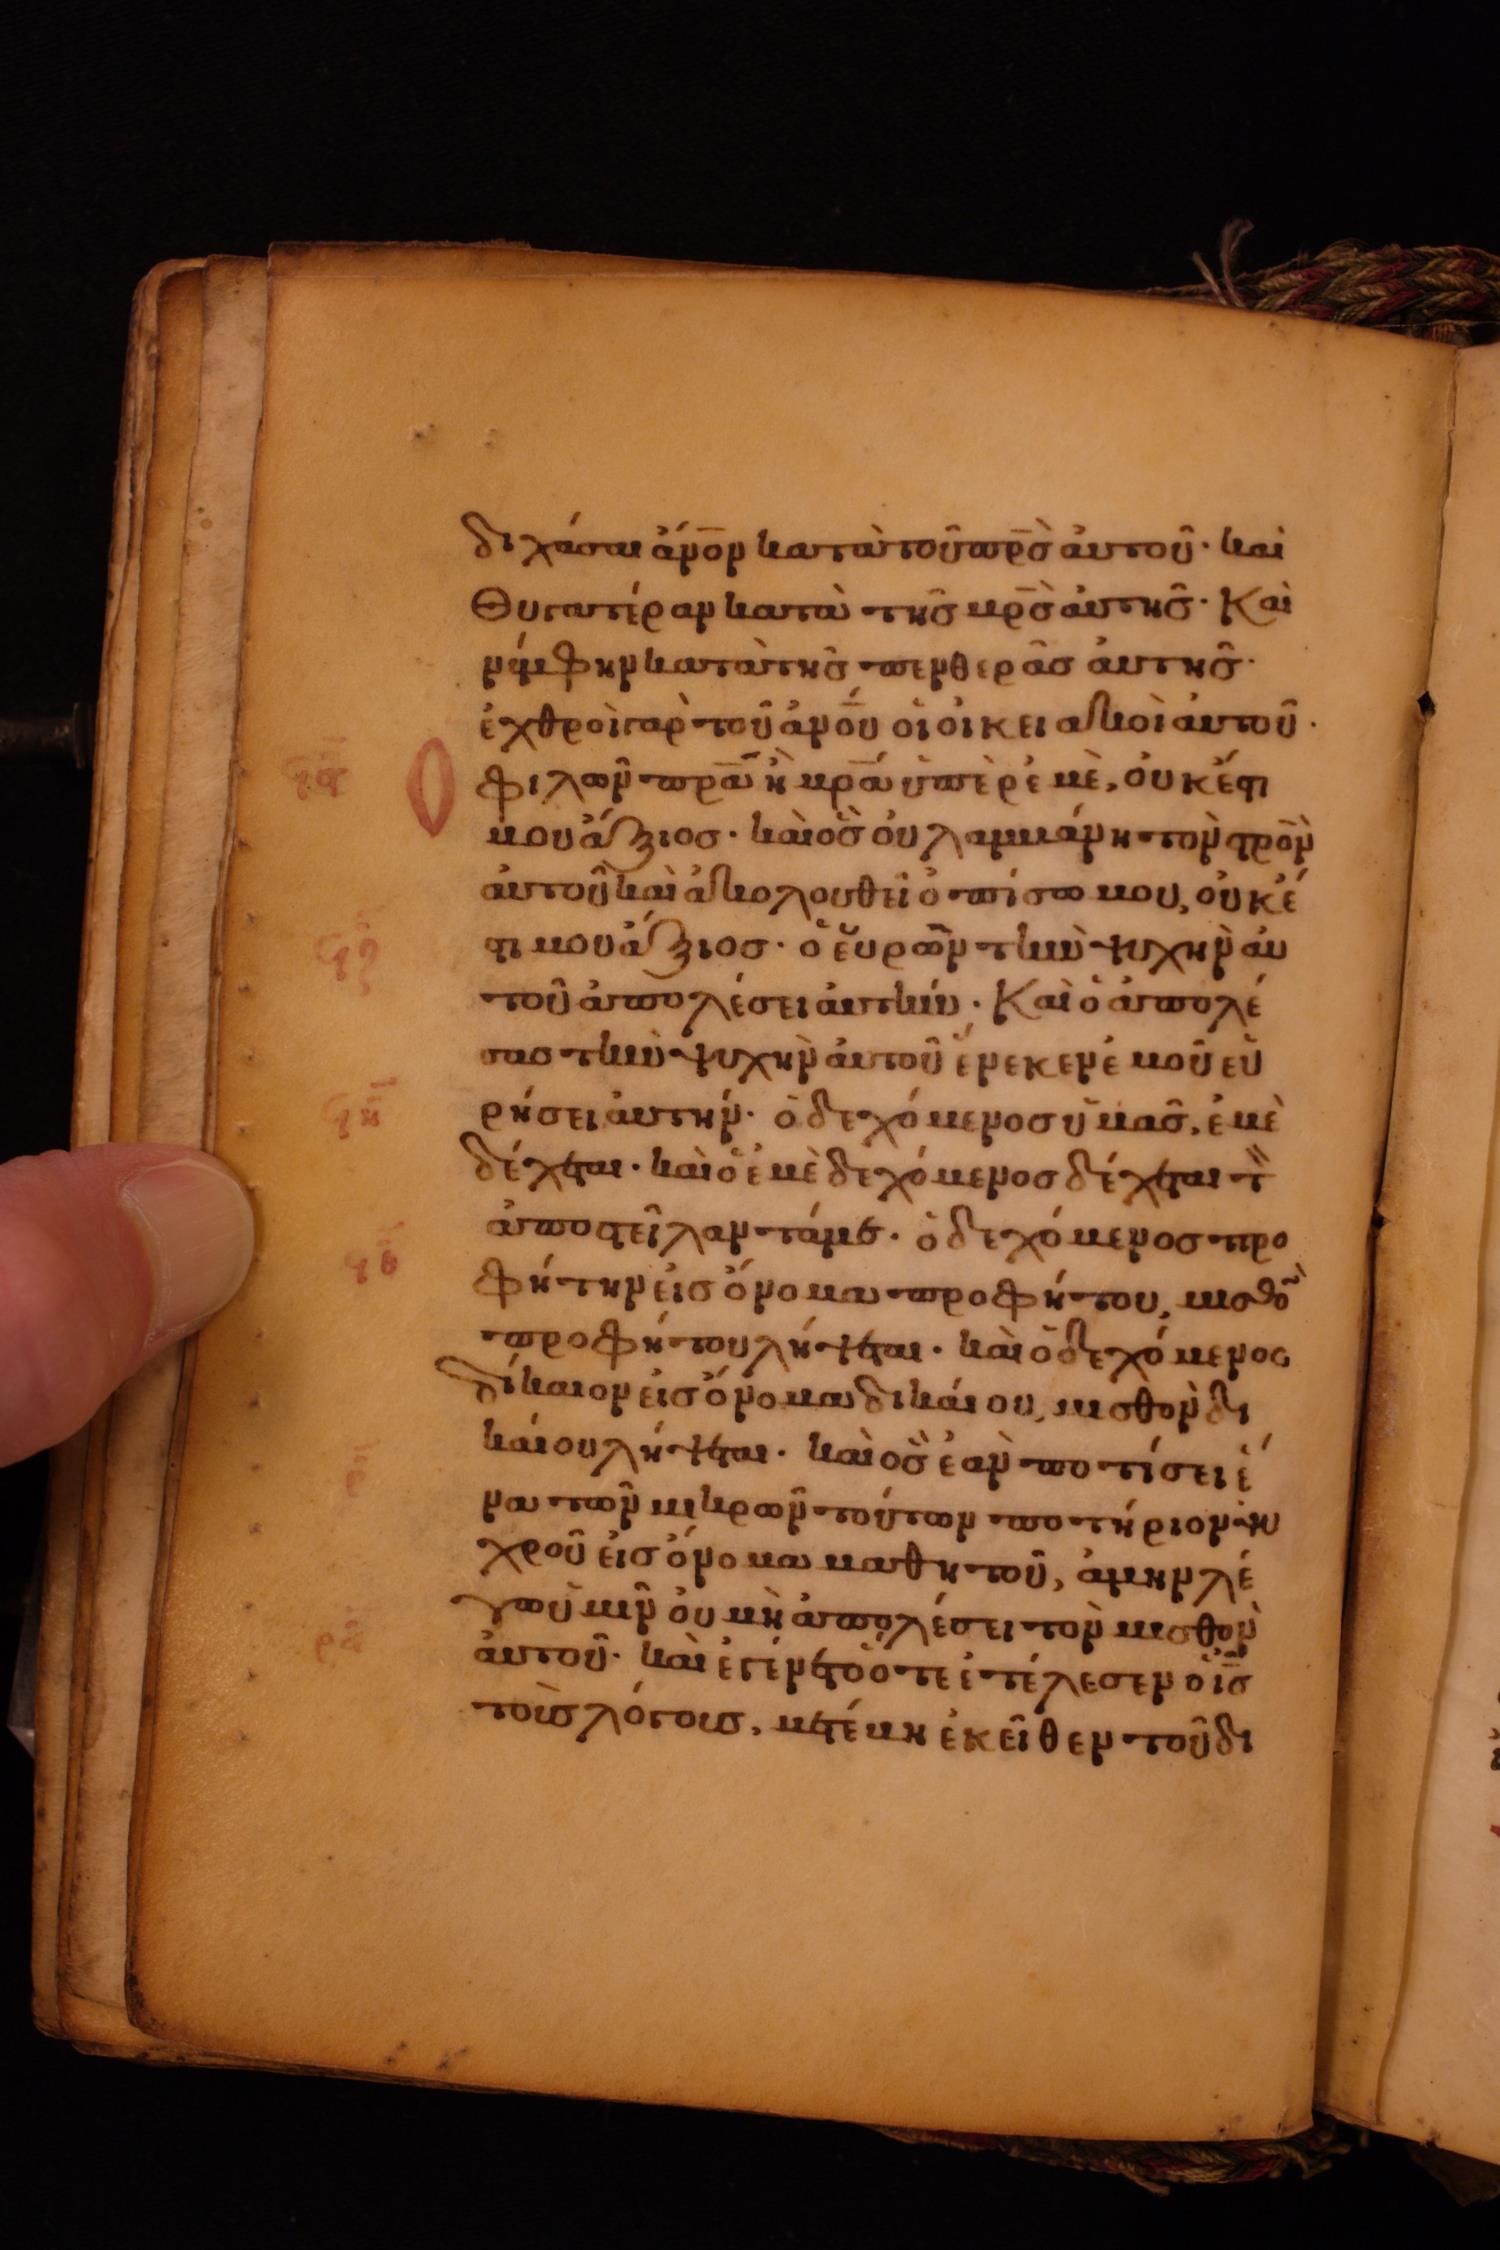 διχάσαι ἄνο̅ν κατὰ τοῦ πρ̅σ̀ ἀυτοῦ· καὶ
θυγατέραν κατὰ τῆσ μρ̅σ̀ ἀυτῆσ· Καὶ
νύμφην κατὰ τῆσ πενθερᾶσ ἀυτῆσ·
ἐχθροὶ γὰρ τοῦ ἀνο̅ύ οἱ οἰκειακοὶ ἀυτοῦ·
ϟϛ Ὁ φιλῶν πρ̅α ἢ μρ̅α ὑπὲρ ἐμὲ, ὀυκ έϛι
μου ἄξιοσ· καὶ ὃσ ὀυ λαμβάνη τὸν ϛρο̅ν
ἀυτοῦ καὶ ἀκολουθεῖ ὀπίσω μου, ὀυκ έ
ϟζ ϛι μου ἄξιοσ· ὁ ἑυρὼν τὴν ψυχὴν ἀυ
τοῦ ἀπολέσει ἀυτήν· Καὶ ὁ ἀπολέ
σασ τὴν ψυχὴν ἀυτοῦ ἕνεκεν ἐμοῦ εὑ
ϟη ρήσει ἀυτήν· ὁ δεχόμενοσ ὑμᾶσ, ἐμὲ
δέχεται· καὶ ὁ ἐμὲ δεχόμενοσ δέχεται τ̀
ϟθ ἀποϛεῖλαντάμε· ὁ δεχόμενοσ προ
φήτην εἰσ ὄνομα προφήτου, μισθὸ
προφήτου λήψεται· καὶ ὁ δεχόμενοσ
δίκαιον εἰσ ὄνομα δικάιου, μισθὸν δι
ρ κάιου λήψεται· καὶ ὃσ ἐὰν ποτίσει ἕ
να τῶν μικρῶν τούτων ποτήριον ψυ
χροῦ εἰσ ὄνομα μαθητοῦ, ἀμὴν λέ
γω ὑμῖν ὀυ μὴ ἀπολέσει τὸν μισθὸν
ρα ἀυτοῦ· καὶ ἐγένετο ὅτε ἐτέλεσεν ὁ ι̅σ
τοὺσ λόγουσ, μετέβη ἐκεῖθεν τοῦ δι